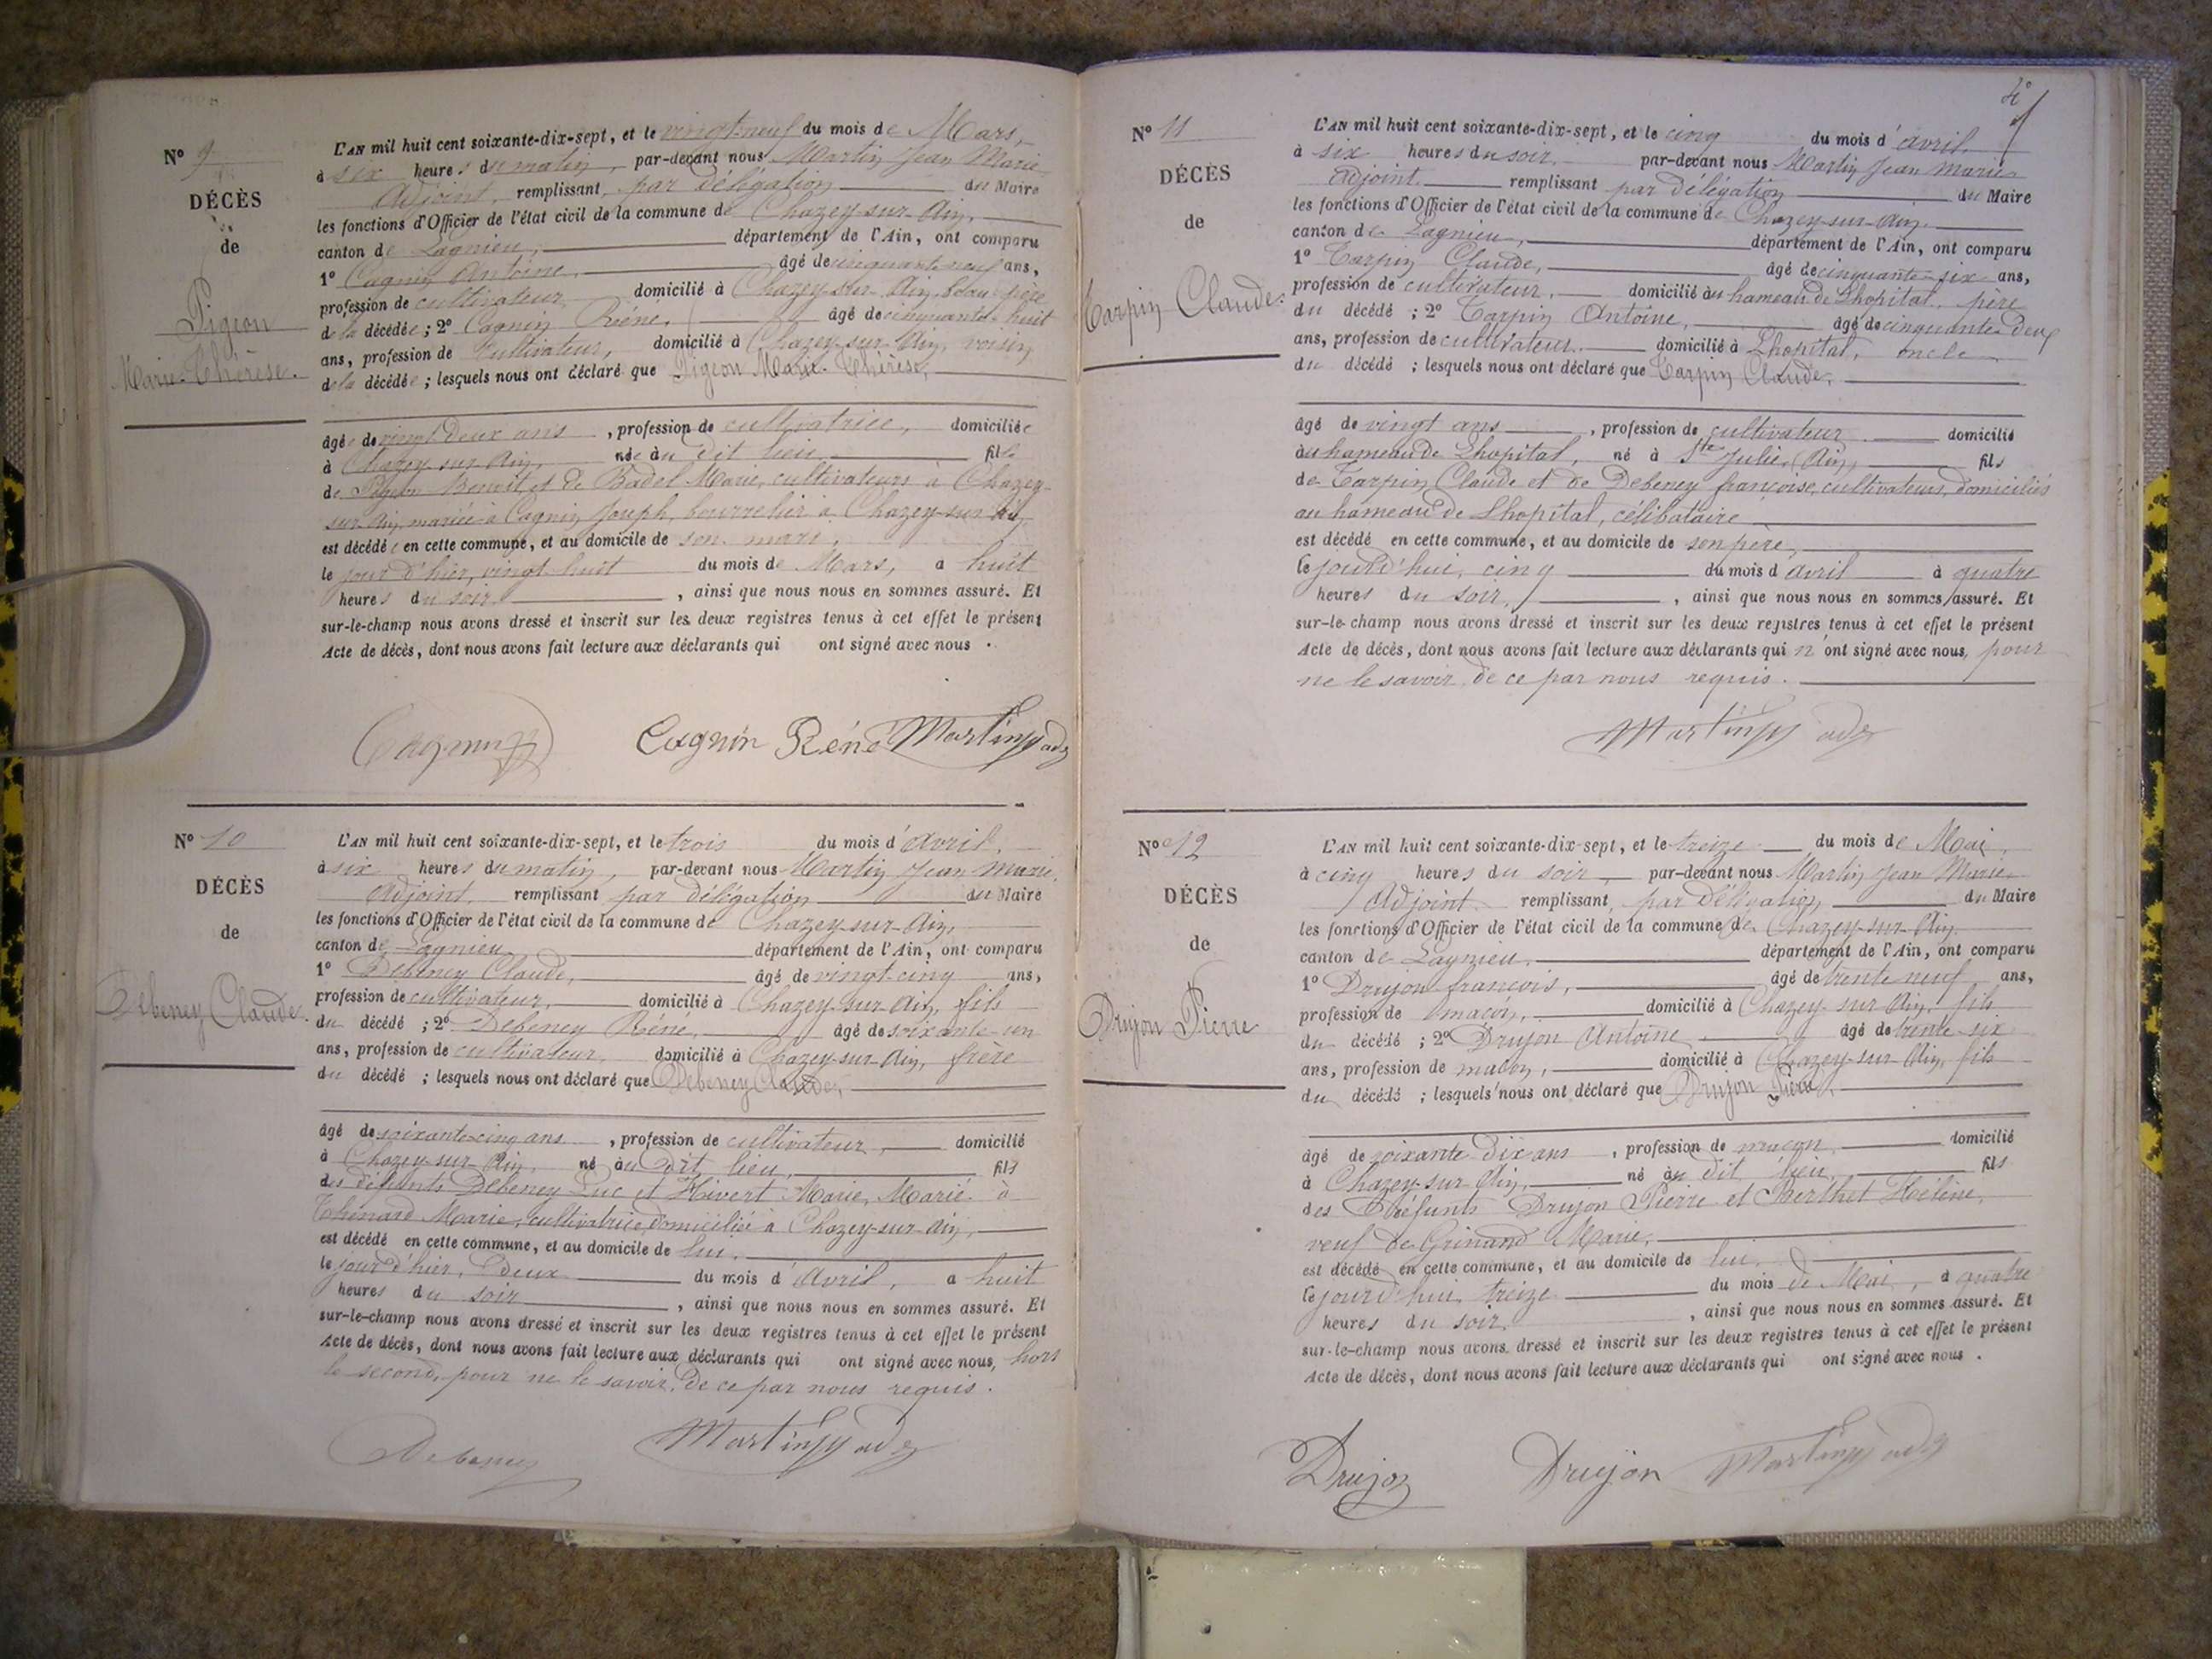 N° 9
DÉCÈS
de
Pigeon
Marie-Thérèse.
L'AN mil huit cent soixante-dix-sept, et le vingt-neuf du mois de Mars,
à six heures du matin, par-devant nous Martin Jean Marie
Adjoint, remplissant par délégation du Maire
les fonctions d'Officier de l'état civil de la commune de Chazey-sur-Ain,
canton de Lagnieu, département de l'Ain, ont comparu
1° Cagnin Antoine, âgé de cinquante-neuf ans,
profession de cultivateur domicilié à Chazey-sur-Ain, beau-père
de la décédée ; 2° Cagnin Réné, âgé de cinquante-huit
ans, profession de Cultivateur, domicilié à Chazey-sur-Ain, voisin
de la décédée ; lesquels nous ont déclaré que Pigeon Marie-Thérèse,
âgée de vingt-deux ans , profession de cultivatrice, domiciliée
à Chazey-sur-Ain, née au dit lieu, fille
de Pigeon Benoit et de Badel Marie, cultivateurs à Chazey-
sur-Ain, mariée à Cagnin Joseph, bourrelier à Chazey-sur-Ain,
est décédée en cette commune, et au domicile de son mari,
le jour d'hier, vingt-huit du mois de Mars, a huit
heures du soir , ainsi que nous nous en sommes assuré. Et
sur-le-champ nous avons dressé et inscrit sur les deux registres tenus à cet effet le présent
Acte de décès, dont nous avons fait lecture aux déclarants qui ont signé avec nous .
Cagnin Cagnin Réné Martin adj
N° 10
DÉCÈS
de
Debeney Claude.
L'AN mil huit cent soixante-dix-sept, et le trois du mois d'Avril,
à six heures du matin, par-devant nous Martin Jean Marie,
Adjoint, remplissant par délégation du Maire
les fonctions d'Officier de l'état civil de la commune de Chazey-sur-Ain,
canton de Lagnieu département de l'Ain, ont comparu
1° Debeney Claude, âgé de vingt-cinq ans,
profession de cultivateur, domicilié à Chazey-sur-Ain, fils
du décédé ; 2° Debeney Réné, âgé de soixante-un
ans, profession de cultivateur, domicilié à Chazey-sur-Ain, frère
du décédé ; lesquels nous ont déclaré que Debeney Claude,
âgé de soixante-cinq ans , profession de cultivateur, domicilié
à Chazey-sur-Ain, né au dit lieu, fils
des défunts Debeney Luc et Hivert Marie, Marié à
Thénard Marie, cultivatrice, domiciliée à Chazey-sur-Ain,
est décédé en cette commune, et au domicile de lui.
le jour d'hier, deux du mois d'Avril, a huit
heures du soir , ainsi que nous nous en sommes assuré. Et
sur-le-champ nous avons dressé et inscrit sur les deux registres tenus à cet effet le présent
Acte de décès, dont nous avons fait lecture aux déclarants qui ont signé avec nous, hors
le second, pour ne le savoir, de ce par nous requis.
Debeney Martin adj
N° 11
DÉCÈS
de
Tarpin Claude.
L'AN mil huit cent soixante-dix-sept, et le cinq du mois d'avril
à six heures du soir, par-devant nous Martin Jean Marie
Adjoint remplissant par délégation du Maire
les fonctions d'Officier de l'état civil de la commune de Chazey-sur-Ain
canton de Lagnieu, département de l'Ain, ont comparu
1° Tarpin Claude, âgé de cinquante-six ans,
profession de cultivateur, domicilié au hameau de Lhopital, père
du décédé ; 2° Tarpin Antoine, âgé de cinquante-deux
ans, profession de cultivateur domicilié à Lhopital, oncle
du décédé ; lesquels nous ont déclaré que Tarpin Claude,
âgé de vingt ans , profession de cultivateur domicilié
au hameau de Lhopital, né à Ste Julie (Ain), fils
de Tarpin Claude et de Debeney françoise, cultivateurs, domiciliés
au hameau de Lhopital, célibataire
est décédé en cette commune, et au domicile de son père,
le jourd'hui, cinq du mois d'avril à quatre
heures du soir, , ainsi que nous nous en sommes assuré. Et
sur-le-champ nous avons dressé et inscrit sur les deux registres tenus à cet effet le présent
Acte de décès, dont nous avons fait lecture aux déclarants qui n'ont signé avec nous, pour
ne le savoir, de ce par nous requis.
Martin adj
N° 12
DÉCÈS
de
Drujon Pierre
L'AN mil huit cent soixante-dix-sept, et le treize du mois de Mai,
à cinq heures du soir, par-devant nous Martin Jean Marie
Adjoint remplissant par délégation du Maire
les fonctions d'Officier de l'état civil de la commune de Chazey-sur-Ain,
canton de Lagnieu. département de l'Ain, ont comparu
1° Drujon françois, âgé de trente-neuf ans,
profession de maçon, domicilié à Chazey-sur-Ain, fils
du décédé ; 2° Drujon Antoine âgé de trente-six
ans, profession de maçon, domicilié à Chazey-sur-Ain, fils
du décédé ; lesquels nous ont déclaré que Drujon Pierre,
âgé de soixante-dix ans , profession de maçon domicilié
à Chazey-sur-Ain, né au dit lieu, fils
des Défunts Drujon Pierre et Berthet Hélène,
veuf de Grinand Marie,
est décédé en cette commune, et au domicile de lui,
le jourd'hui treize du mois de Mai, à quatre
heures du soir. , ainsi que nous nous en sommes assuré. Et
sur-le-champ nous avons dressé et inscrit sur les deux registres tenus à cet effet le présent
Acte de décès, dont nous avons fait lecture aux déclarants qui ont signé avec nous .
Drujon Drujon Martin adj